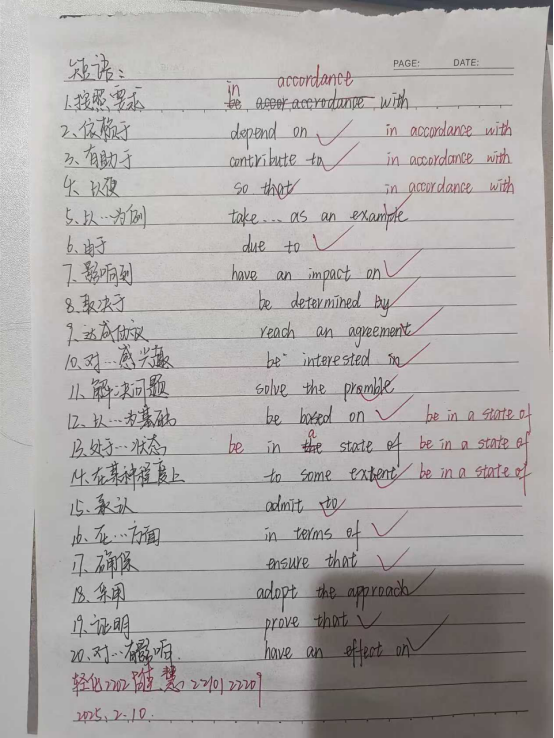 PAGE: DATE:
短语:
in accordance
1.按照要求 be accor accrodance with
2、依赖于 depend on in accordance with
3、有助于 contribute to in accordance with
4、以便 so that in accordance with
5、以…为例 take... as an example
6、由于 due to
7、影响到 have an impact on
8、取决于 be determined by
9、达成协议 reach an agreement
10、对…感兴趣 be interested in
11、解决问题 solve the promble
12、以…为基础 be based on be in a state of
a
13、处于…状态 be in the state of be in a state of
14、在某种程度上 to some extent be in a state of
15、承认 admit to
16、在…方面 in terms of
17、确保 ensure that
18、采用 adopt the approach
19、证明 prove that
20、对…有影响 have an effect on
轻化2202 慧 2210122209
2025.2.10.